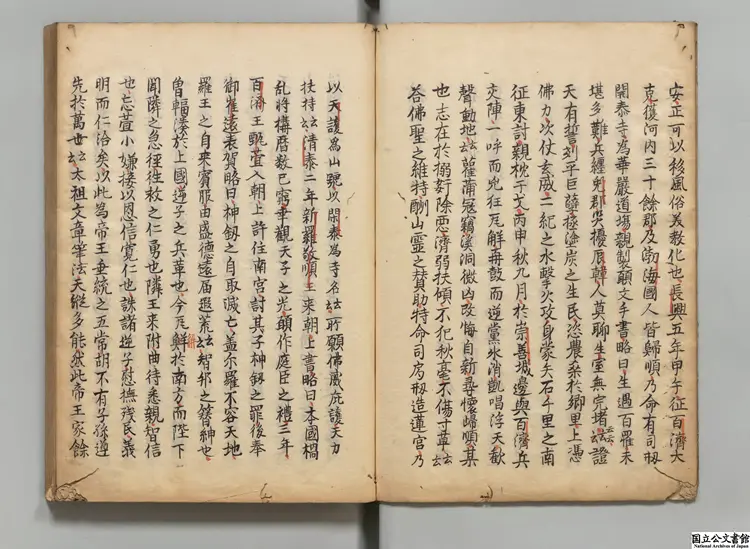 安正可以移風俗美教化也長興五年甲午征百濟大
克後河内三十餘郡及渤海國人皆歸順乃命有司刱
開泰寺為華嚴道場親製願文手書略曰生遇百罹未
堪多難兵纏剋郡災擾辰韓人莫聊生室無完堵云云證
天有誓刬平巨孽極塗炭之生民恣農桑於郷里上憑
佛力次仗玄威二紀之水擊火攻身蒙矢石千里之南
征東討親枕干戈丙申秋九月於崇善城邊與百濟兵
交陣一呼而兇狂瓦解再鼓而逆黨氷消凱唱浮天歓
聲動地云云萑蒲冠竊溪洞微凶改悔自新尋懷歸順某
也志在於搦奸除悪濟弱扶傾不犯秋毫不傷寸草云云
荅佛聖之維特酬山靈之賛助特命司房刱造蓮宮乃
以天護為山號以開泰為寺名云云所願佛威庇護天力
扶持云云清泰二年新羅敬順王来朝上書略曰本國禍
乱將構曆数已窮幸觀天子之光願作庭臣之禮三年
百濟王甄萱入朝上許住南宮討其子神釼之罪後奉
御崔遠表賀略曰神釼之自取滅亡盖尓羅不容天地
羅王之自来賓服由盛德遠届遐荒云云智邦之簪紳也
曽輻湊於上國逆子之兵革也今瓦解於南方而陛下
聞隣之急徑往救之仁勇也隣王来附曲待悉親智信
也忘萱小嫌接以恩信寛仁也誅諸逆子慰撫残民義
明而仁洽矣以此為帝王垂統之五常胡不有子孫遵
先於萬世云云太祖文章筆法天縦多能然此帝王家餘
国立公文書館
National Archives of Japan